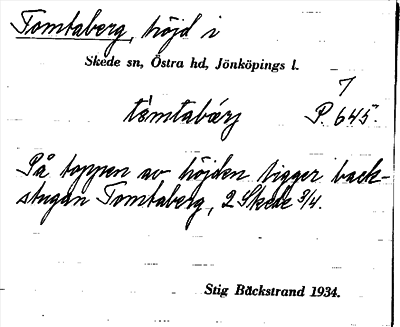 Tomtaberg, höjd i
Skede sn, Östra hd, Jönköpings l.
7
tömtabárj P. 645.
På toppen av höjden ligger back-
stugan Tomtaberg, 2 Skede 3/4.
Stig Bäckstrand 1934.